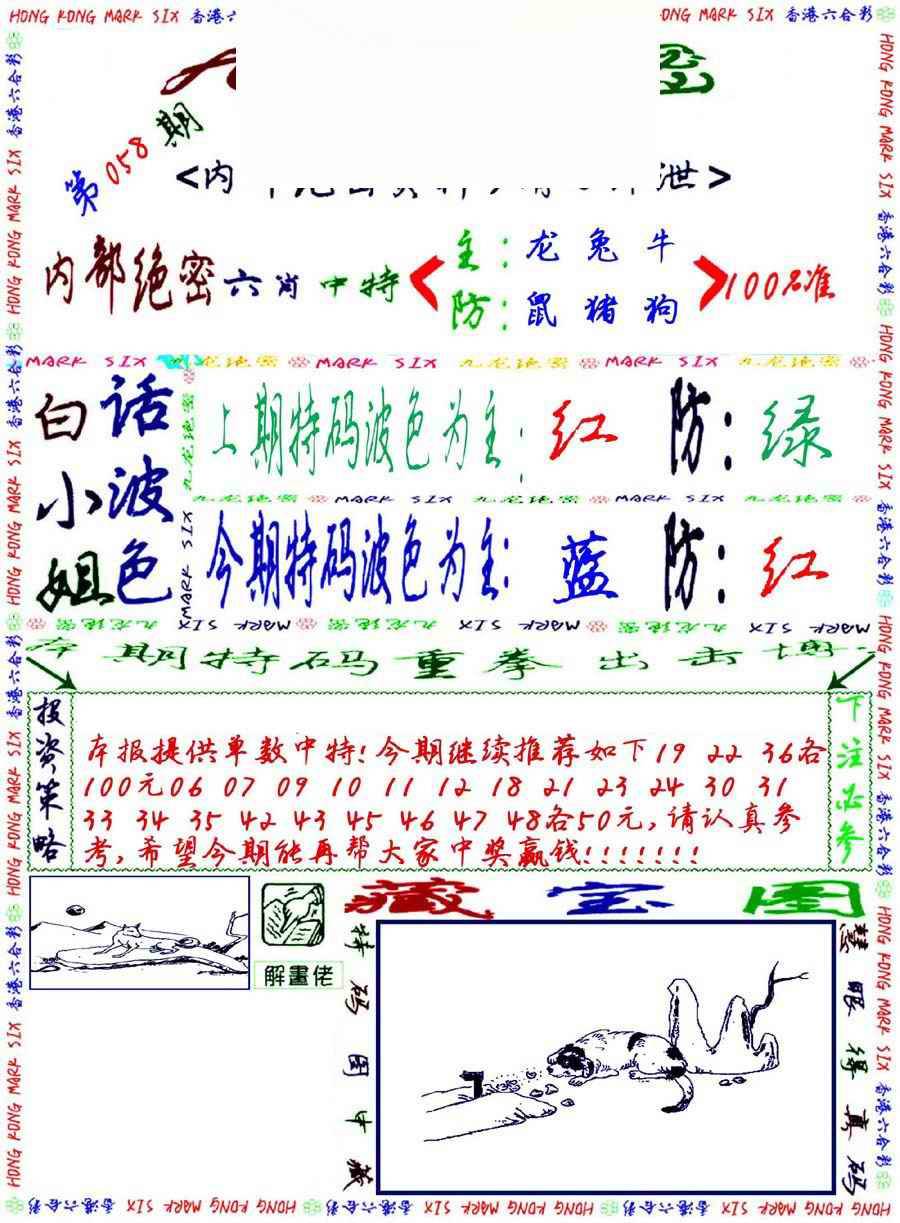 HONG KONG MARK SIX 香港六合彩
第058期
<内
泄>
内部绝密六肖中特
主:龙兔牛
防:鼠猪狗
100%准
MARK SIX 九龙绝密 MARK SIX 九龙绝密 MARK SIX 九龙绝密
白话
小波
姐色
上期特码波色为主:红 防:绿
九龙绝密 MARK SIX 九龙绝密 MARK SIX 九龙绝密
今期特码波色为主:蓝 防:红
MARK SIX 九龙绝密 MARK SIX 九龙绝密 MARK SIX 九龙绝密
本期特码重拳出击
投资策略
本报提供单数中特!今期继续推荐如下19 22 36各
100元06 07 09 10 11 12 18 21 23 24 30 31
33 34 35 42 43 45 46 47 48各50元,请认真参
考,希望今期能再帮大家中奖赢钱!!!!!!!
下注必参
解畫佬
藏宝图
特码图中藏
慧眼得真码
HONG KONG MARK SIX 香港六合彩